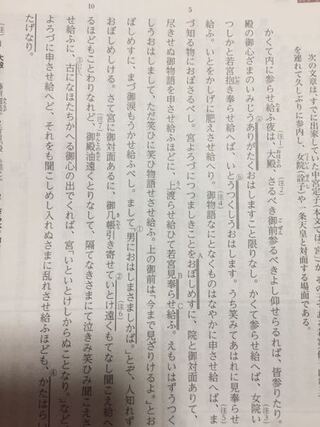 次の文章は、すでに出家していた中宮定子(本文では「宮」)が、その
を連れて久しぶりに参内し、女院(詮子)や一条天皇と対面する場面である。
かくて内に参らせ給ふ夜は、大殿、さるべき御前参るべきよし仰せらるれば、皆参りたり。
殿の御心ざまのいみじうありがたくおはしますこと限りなし。かくて参らせ給へば、女院い
つしかと若宮抱き奉らせ給へば、いとうつくしうおはします。うち笑みてあはれに見奉らせ
給ふ。いとをかしげに肥えさせ給へり。御物語なにとなくものはなやかに申させ給へば、ま
づ知る物におぼしめさる。宮よろづにつつましきことをおぼしめすに、院と御対面ありて、
尽きせぬ御物語を申させ給ふほどに、上渡らせ給ひて若宮見奉らせ給ふ。えもいはずうつく
しうおはしまして、ただ笑ひに笑ひ物語せさせ給ふ。上の御前は今まで見ざりけるよ。」とお
ぼしめすに、まづ御涙もうかせ給ふべし。まして、「男におはしまさましかば。」とぞ、人知れず
おぼしめしける。さて宮に御対面あるに、御几帳引き寄せていとけ遠くもてなし聞こえ給へ
るほどもことわりなれど、御殿油遠くとりなして、隔てなきさまにて泣きみ笑ひみ聞こえさ
せ給ふに、古になほたちかへる御心の出でくれば、宮「いといとしからぬことなり。」など
よろづに申させ給へど、それをも聞こしめし入れぬさまに乱れさせ給ふほども、かたはらい
たげなり。